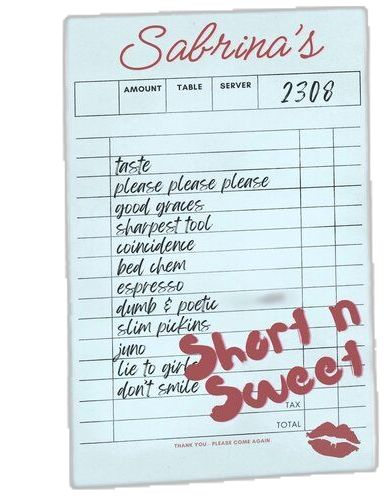 Sabrina's
AMOUNT TABLE SERVER 2308
taste
please please please
good graces
sharpest tool
coincidence
bed chem
espresso
dumb & poetic
slim pickins
juno
lie to girls
don't smile
Short n
Sweet
TAX
TOTAL
THANK YOU - PLEASE COME AGAIN